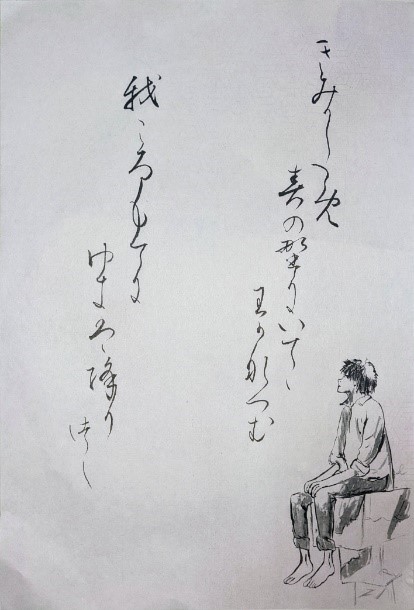 きみかため
春の野にいてゝ
わかなつむ
我ころもてに
ゆきは降り
つゝ